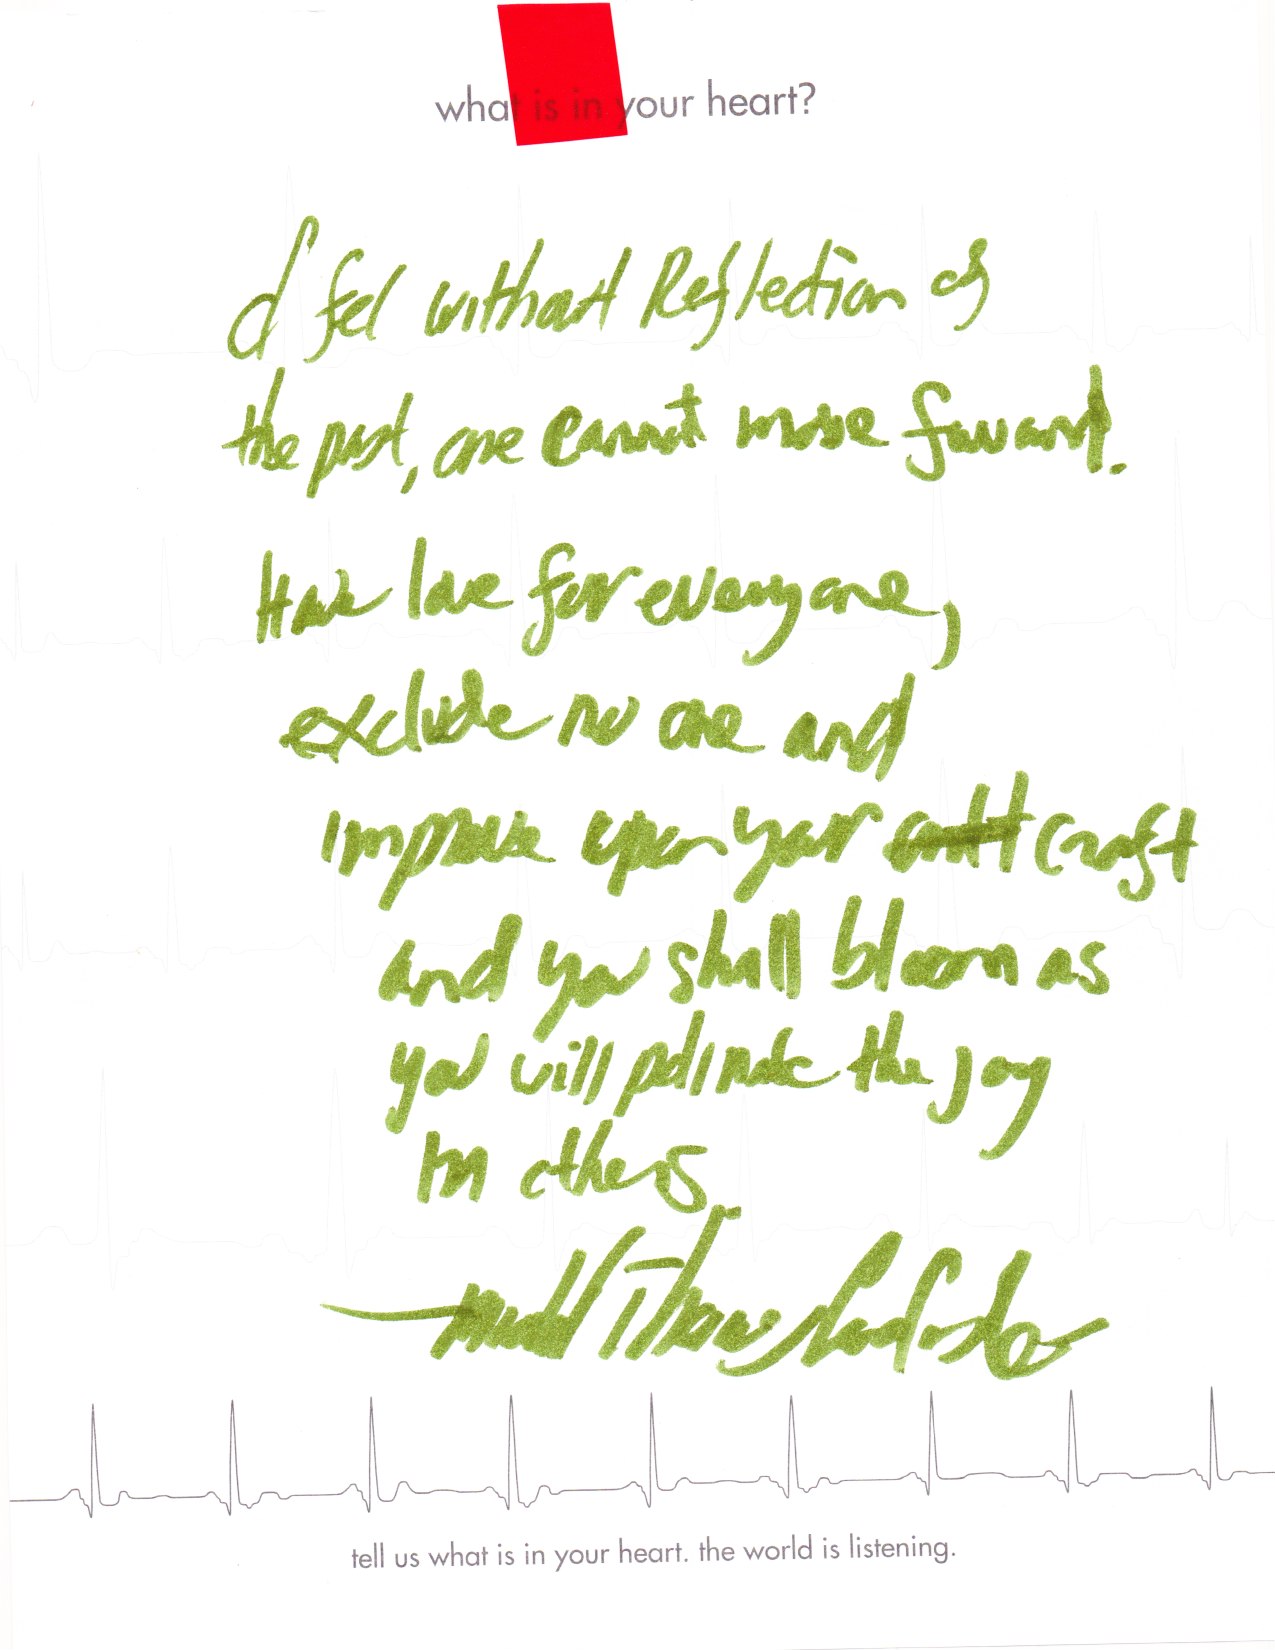 what is in your heart?
I feel without Reflection of
the past, one cannot move forward.
Have love for everyone,
exclude no one and
improve upon your craft
and you shall bloom as
you will pollinate the joy
in others
tell us what is in your heart. the world is listening.